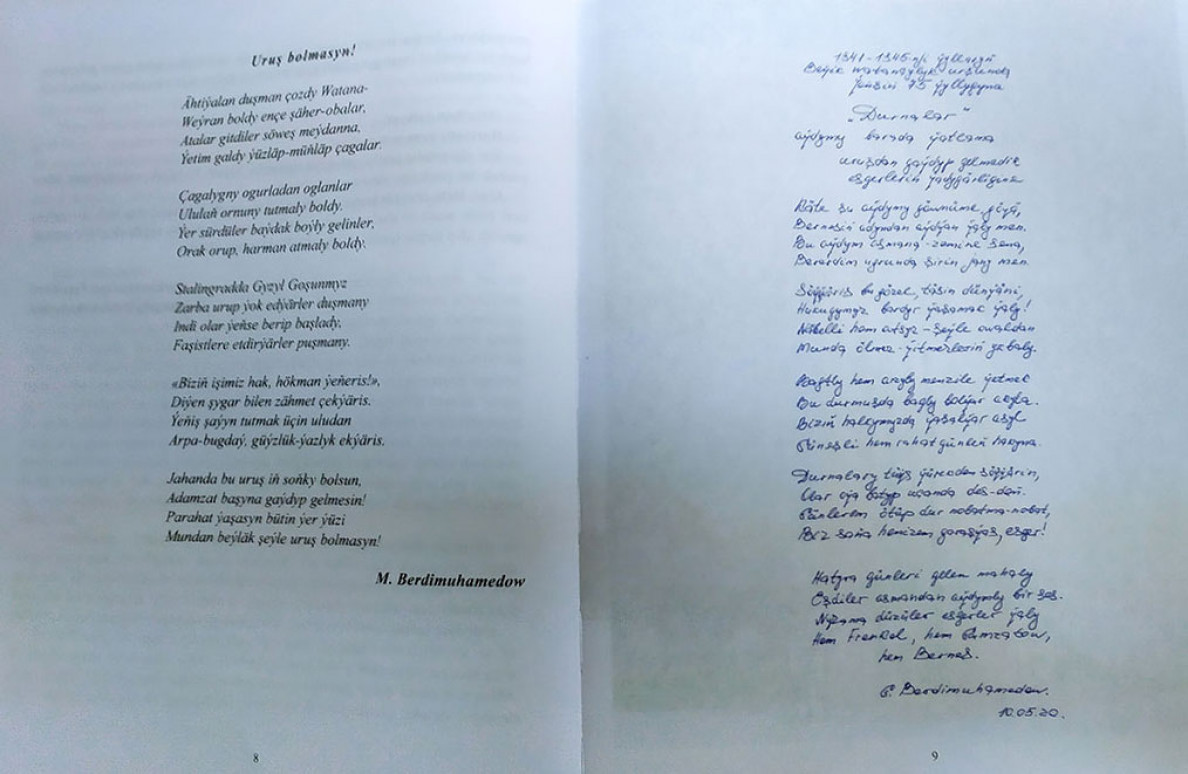 Uruş bolmasyn!
Ähtiýalan duşman çozdy Watana-
Weýran boldy ençe şäher-obalar,
Atalar gitdiler söweş meýdanna,
Ýetim galdy ýüzläp-müňläp çagalar.
Çagalygny ogurladan oglanlar
Ululaň ornuny tutmaly boldy.
Ýer sürdüler baýdak boýly gelinler,
Orak orup, harman atmaly boldy.
Stalingradda Gyzyl Goşunmyz
Zarba urup ýok edýärler duşmany
Indi olar ýeňse berip başlady,
Faşistlere etdirýärler puşmany.
«Biziň işimiz hak, hökman ýeňeris!»,
Diýen şygar bilen zähmet çekýäris.
Ýeňiş şaýyn tutmak üçin uludan
Arpa-bugdaý, güýzlük-ýazlyk ekýäris.
Jahanda bu uruş iň soňky bolsun,
Adamzat başyna gaýdyp gelmesin!
Parahat ýaşasyn bütin ýer ýüzi
Mundan beýläk şeýle uruş bolmasyn!
M. Berdimuhamedow
8
1941-1945-nji ýyllaryň
Beýik Watançylyk urşunda
Ýeňşiň 75 ýyllygyna
„Durnalar"
aýdymy barada ýatlama
uruşdan gaýdyp gelmedik
esgerleriň ýadygärligine
bu aýdymy
Bernesiň aýdyan ýaly men.
Bu aýdym asmana-zemine
ugrunda şirin jany men.
Söýýäris bu gözel, täsin dünýäni,
Hukugymyz bardyr ýaşamak ýaly!
Näbelli hem atsyz - şeýle
Munda
Bagtly hem menzile ýetmek
Bu durmuşda bagly bolýar
Biziň halkymyzda ýaşalýar
Güneşli hem rahat günleň
Durnalary ýürekden söýýärin,
Günlerem ötüp dur nobatma-nobat,
Biz saňa henizem garaşýas, esger!
Hatyra günleri gelen mahaly
Eşdiler asmandan aýdymly bir ses.
Nyzama düzüler esgerler ýaly
Hem Frenkel, hem Gamzatow,
hem Bernes.
G. Berdimuhamedow.
10.05.20.
9